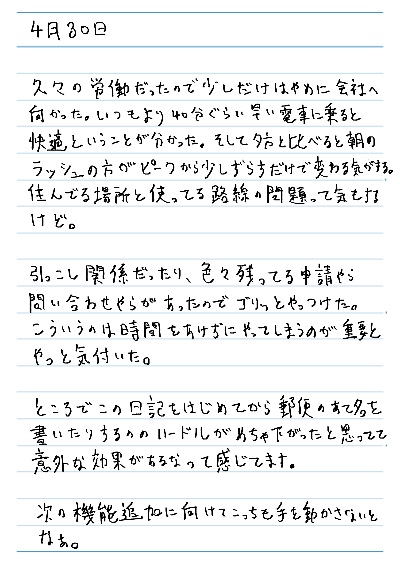 4月30日
久々の労働だったので少しだけはやめに会社へ
向かった。いつもより40分ぐらい早い電車に乗ると
快適ということが分かった。そして夕方と比べると朝の
ラッシュの方がピークから少しずらすだけで変わる気がする。
住んでる場所と使ってる路線の問題って気もする
けど。
引っこし関係だったり、色々残ってる申請やら
問い合わせやらがあったのでゴリッとやっつけた。
こういうのは時間をあけずにやってしまうのが重要と
やっと気付いた。
ところでこの日記をはじめてから郵便のあて名を
書いたりするののハードルがめちゃ下がったと思ってて
意外な効果があるなって感じてます。
次の機能追加に向けてこっちも手を動かさないと
なぁ。